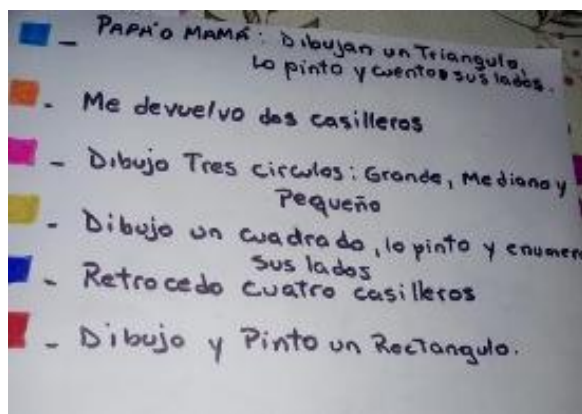 - PAPA'O MAMÁ: Dibujan un Triangulo,
Lo pinto y cuento sus lados.
- Me devuelvo dos casilleros
- Dibujo Tres circulos: Grande, Mediano y
Pequeño
- Dibujo un cuadrado, lo pinto y enumer
sus lados
- Retrocedo cuatro casilleros
- Dibujo y Pinto un RecTangulo.